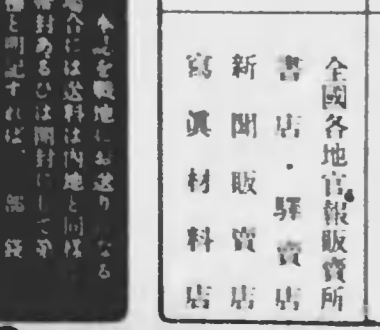 全國各地官報販賣所
書店・驛賣店
新聞販賣店
寫眞材料店
本誌を戰地にお送りになる
場合には送料は内地と同樣
封あるひは開封にして
と明記すれば、